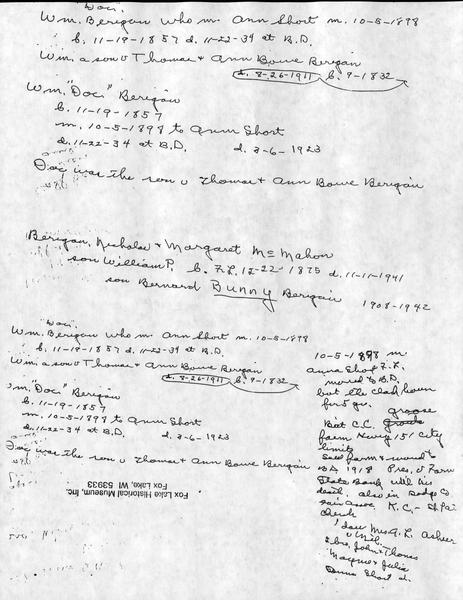 "Doc."
Wm. Berigan who m. Ann Short m. 10-5-1898
b. 11-19-1857 d. 11-22-34 at B.D.
Wm. a son v Thomas + Ann Bowe Berigan
d. 8-26-1911 b. 9-1832
Wm. "Doc." Berigan
b. 11-19-1857
m. 10-5-1898 to Ann Short
d. 11-22-34 at B.D. d. 3-6-1923
Doc was the son v Thomas + Ann Bowe Berigan
Berigan, Nicholas + Margaret McMahon
son William P. b. F.L. 12-22-1875 d. 11-11-1941
son Bernard BUNNY Berigan 1908-1942
"Doc."
Wm. Berigan who m. Ann Short m. 10-5-1898
b. 11-19-1857 d. 11-22-34 at B.D.
Wm. a son v Thomas + Ann Bowe Berigan
d. 8-26-1911 b. 9-1832
Wm. "Doc." Berigan
b. 11-19-1857
m. 10-5-1898 to Ann Short
d. 11-22-34 at B.D. d. 3-6-1923
Doc was the son v Thomas + Ann Bowe Berigan
Fox Lake Historical Museum, Inc.
Fox Lake, WI 53933
10-5-1898 m
Anna Short F.L.
moved to B.D.
but the
for 5 yr.
Bot C.C.
farm Hwy 151 City
limits
Sold farm + moved to
B.D. 1918 Pres. v Farm
State Bank until his
death. also in Dodge Co
Fair Assoc. K.C. - St Pa
church
dau Mrs A. L.
v Mil.
2 bro, John + Thomas
+ Julia
Short d.